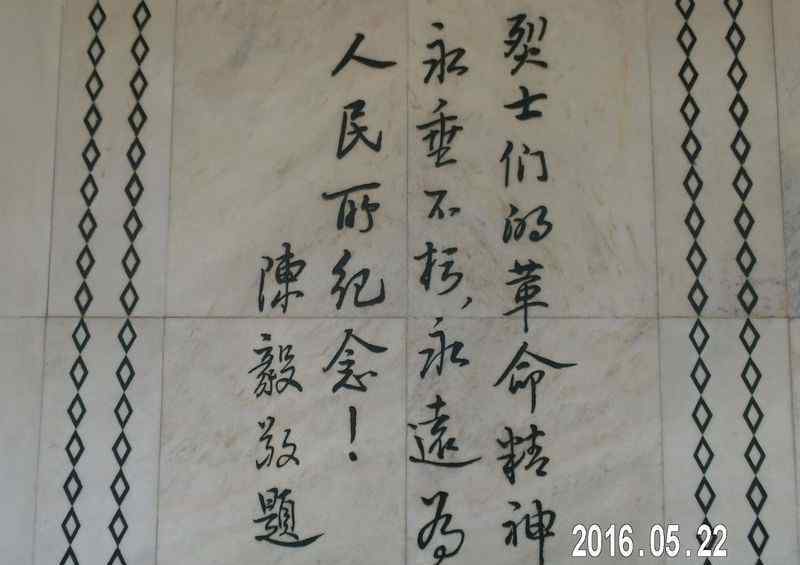 烈士们的革命精神
永垂不朽，永遠为
人民所纪念！
陳毅敬題
2016.05.22